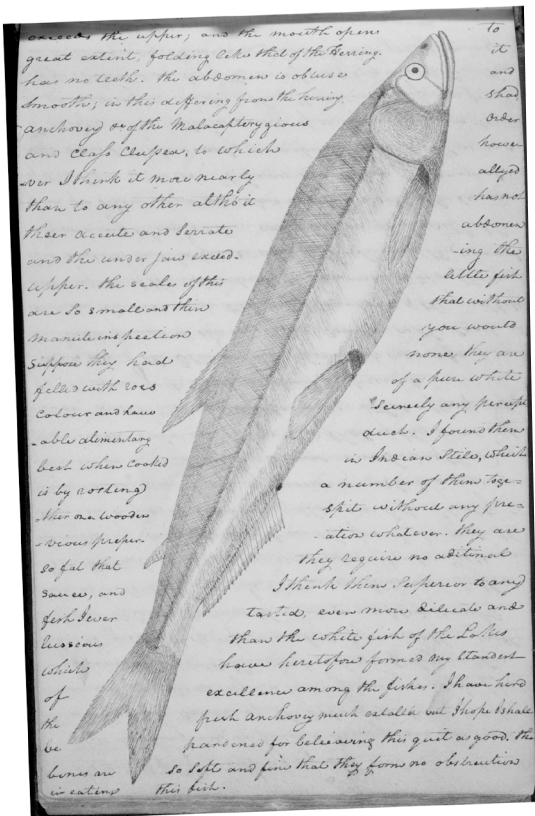 exceeds the upper; and the mouth opens to
great extent, folding like that of the Herring. it
has no teeth. the abdomen is obtuse and
smooth; in this differing from the herring, shad
anchovey &c of the Malacopterygious Order
and Class Clupea, to which howe
-ver I think it more nearly allyed
than to any other altho' it has not
their accute and serrate abdomen
and the under jaw exceed- -ing the
upper. the scales of this little fish
are so small and thin that without
manute inspection you would
suppose they had none they are
filled with roes of a pure white
colour and have scercely any percept
-able alimentary duct. I found them
best when cooked in Indian Stile, which
is by rosting a number of them toge-
-ther on a wooden spit without any pre-
-vious preper- -ation whatever. they are
so fat that they require no aditional
sauce, and I think them superior to any
fish I ever tasted, even more dilicate and
lusscious than the white fish of the Lakes
which have heretofore formed my standart
of excellence among the fishes. I have herd
the fresh anchovey much extolled but I hope I shall
be pardoned for believing this quit as good. the
bones are so soft and fine that they form no obstruction
in eating this fish.